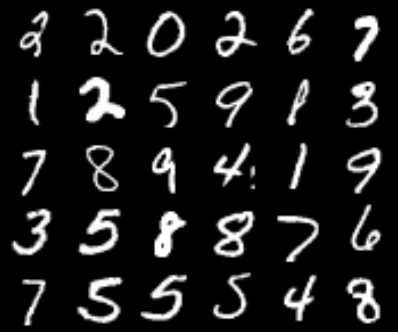 2 2 0 2 6 7
1 2 5 9 1 3
7 8 9 4 1 9
3 5 8 8 7 6
7 5 5 5 4 8